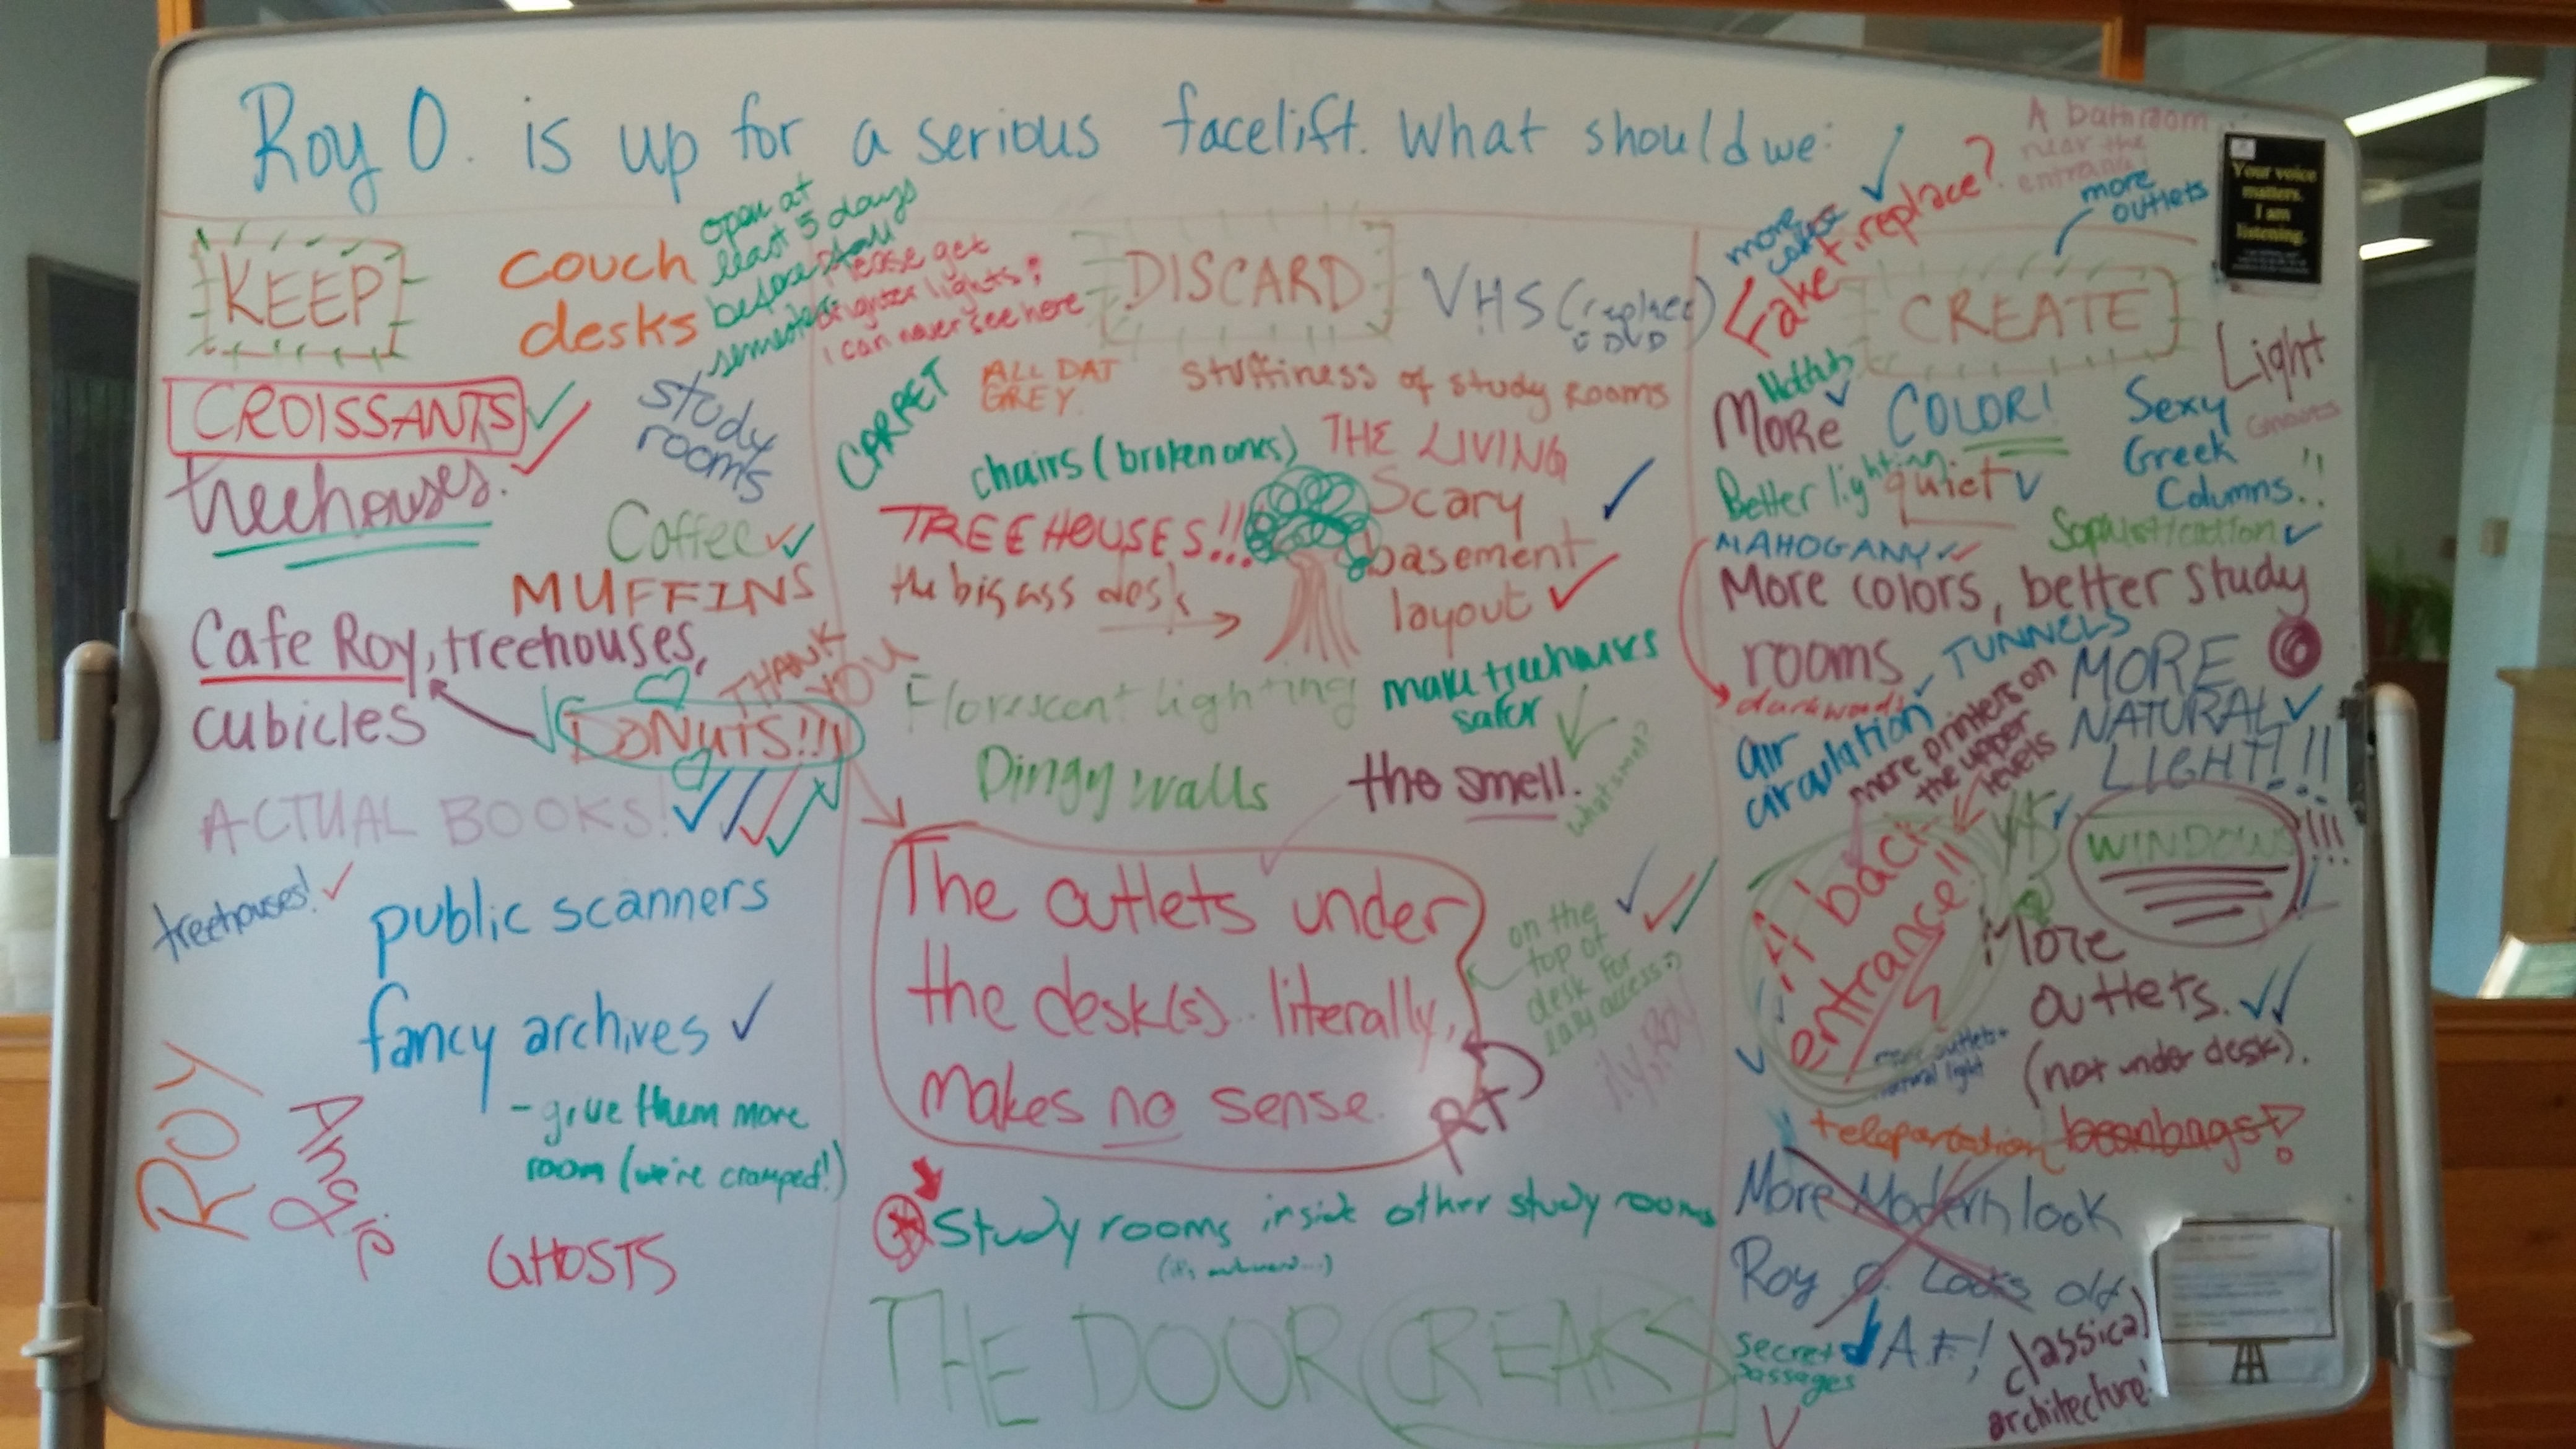 Roy O. is up for a serious facelift. What should we:
KEEP
couch
desks
open at
least 5 days
before
semester
Please get
brighter lights!
I can never see here
CROISSANTS
treehouses.
study
rooms
Coffee
MUFFINS
Cafe Roy, treehouses,
cubicles
THANK
YOU
DONUTS!!!
ACTUAL BOOKS!
treehouses!
public scanners
fancy archives
- give them more
room (we're cramped!)
ROY
Angie
GHOSTS
DISCARD
VHS (replace
DVD
CARPET
ALL DAT
GREY.
stuffiness of study rooms
chairs (broken ones)
THE LIVING
TREEHOUSES!!!
Scary
basement
layout
the big ass desk
Florescent lighting
make treehouses
safer
Dingy walls
the smell.
what smell?
The outlets under
the desk(s).. literally,
makes no sense.
on the
top of
desk for
easy access :)
ily, Roy
RT
Study rooms inside other study rooms
(it's awkward...)
THE DOOR CREAKS
more
Fake fireplace?
A bathroom
near the
entrance!
more
outlets
Your voice
matters.
I am
listening.
CREATE
Light
Hottub
More
COLOR!
Sexy
Greek
Columns.!!
Better lighting
quiet
MAHOGANY
Sophistication
More colors, better study
rooms
dark woods
TUNNELS
MORE
NATURAL
LIGHT!!!!
air
circulation
more printers on
the upper
levels
WINDOWS!!!
A back
entrance!!
More
outlets.
(not under desk).
more outlets +
natural light
teleportation
beanbags!
More Modern look
Roy O. Looks old
A.F!
secret
passages
classical
architecture!